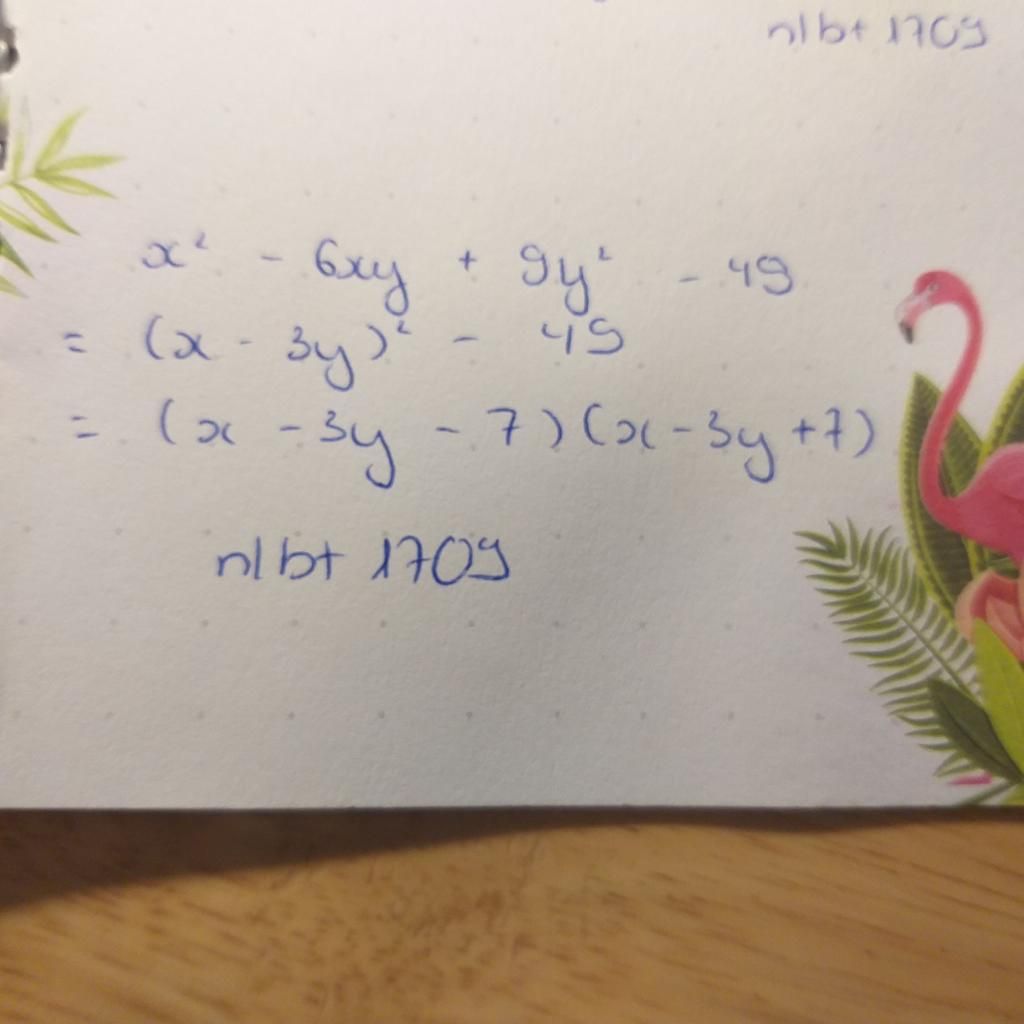 nlbt 1709
x² - 6xy + 9y² - 49
= (x - 3y)² - 49
= (x - 3y - 7)(x - 3y + 7)
nlbt 1709